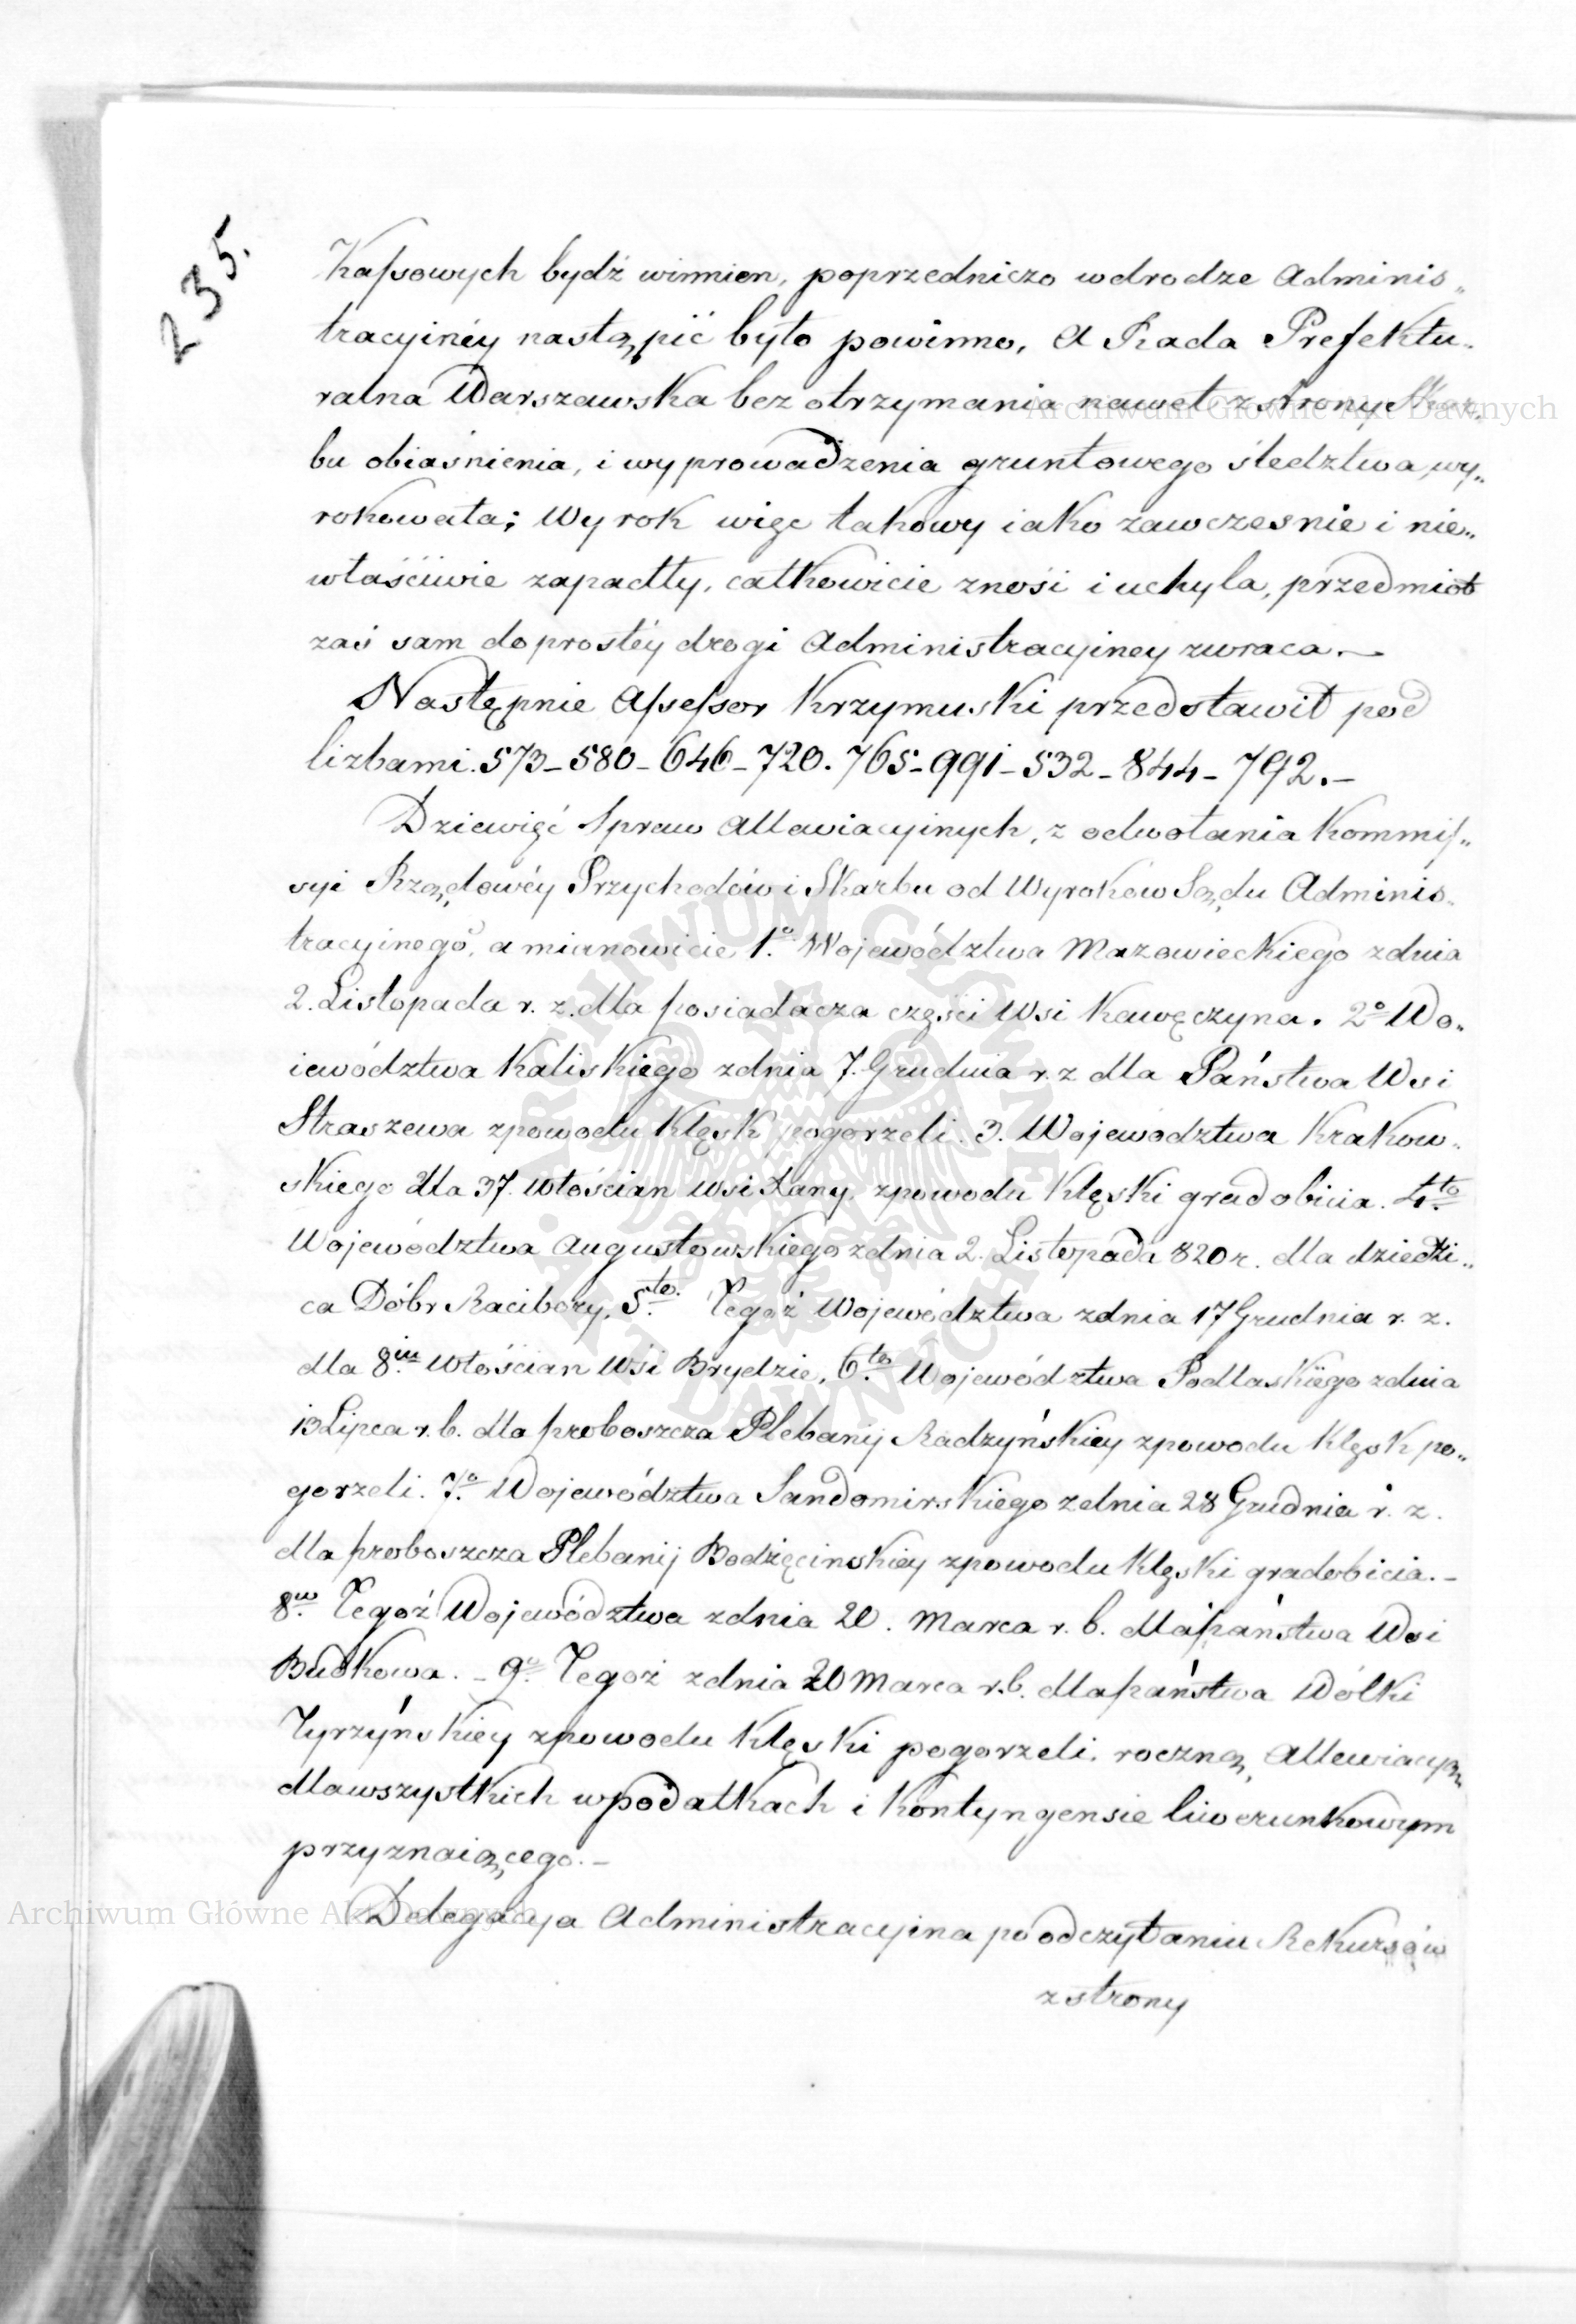 235.
Kassowych bydź winnien, poprzedniczo w drodze Adminis„
tracyinéy nastąpić było powinno, a Rada Prefektu„
ralna Warszawska bez otrzymania nawet z strony Skar„
bu obiaśnienia, i wyprowadzenia gruntowego śledztwa wy„
rokowała; Wyrok więc takowy iako zawczesnie i nie„
właściwie zapadły, całkowicie znosi i uchyla, przedmiot
zaś sam do prostéy drogi Administracyiney zwraca.—
Następnie Assessor Krzymuski przedstawił pod
liczbami. 573_580_646_720. 765_991_532_844_792._
Dziewięć Spraw Allewiacyinych, z odwołania Kommis„
syi Rządowéy Przychodów i Skarbu od Wyroków Sądu Adminis„
tracyinego, a mianowicie 1.o Województwa Mazowieckiego z dnia
2. Listopada r. z. dla posiadacza części Wsi Kawęczyna. 2o Wo„
iewództwa Kaliskiego z dnia 7. Grudnia r. z dla Państwa Wsi
Straszewa z powodu Klęsk pogorzeli. 3. Województwa Krakow„
skiego dla 37. Włościan Wsi Łany z powodu Klęski gradobicia. 4.to
Województwa Augustowskiego z dnia 2. Listopada 820 r. dla dziedzi„
ca Dóbr Racibory, 5.to Tegoż Województwa z dnia 17 Grudnia r. z.
dla 8.iu Włościan Wsi Brydzie, 6.to Województwa Podlaskiego z dnia
13 Lipca r. b. dla proboszcza Plebanij Radzyńskiey z powodu Klęsk po„
gorzeli. 7.o Województwa Sandomirskiego z dnia 28 Grudnia r. z.
dla proboszcza Plebanij Bodzęcinskiey z powodu Klęski gradobicia._
8.vo Tegoż Województwa z dnia 20. Marca r. b. dla państwa Wsi
Budkowa._ 9.o Tegoż z dnia 20 Marca r. b. dla państwa Wólki
Tyrzyńskiey z powodu Klęski pogorzeli. roczną Allewiacyą
dla wszystkich w podatkach i Kontyngensie liwerunkowym
przyznaiącego._
Delegacya Administracyina po odczytaniu Rekursów
z strony
Archiwum Główne Akt Dawnych
Archiwum Główne Akt Dawnych
ARCHIWUM GŁÓWNE AKT DAWNYCH